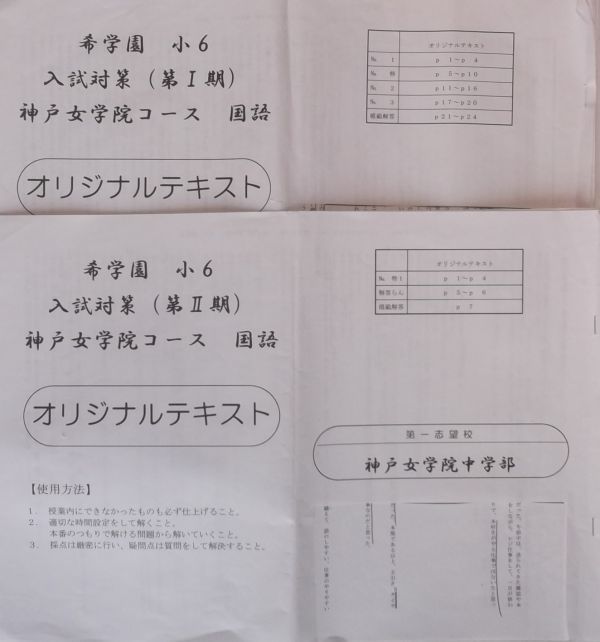 希学園 小6
入試対策（第Ⅰ期）
神戸女学院コース 国語
オリジナルテキスト
オリジナルテキスト
№ 1 p 1～p 4
№ 特 p 5～p10
№ 2 p11～p16
№ 3 p17～p20
模範解答 p21～p24
希学園 小6
入試対策（第Ⅱ期）
神戸女学院コース 国語
オリジナルテキスト
【使用方法】
1． 授業内にできなかったものも必ず仕上げること。
2． 適切な時間設定をして解くこと。
本番のつもりで解ける問題から解いていくこと。
3． 採点は厳密に行い、疑問点は質問をして解決すること。
オリジナルテキスト
№ 特1 p 1～p 4
解答らん p 5～p 6
模範解答 p 7
第一志望校
神戸女学院中学部